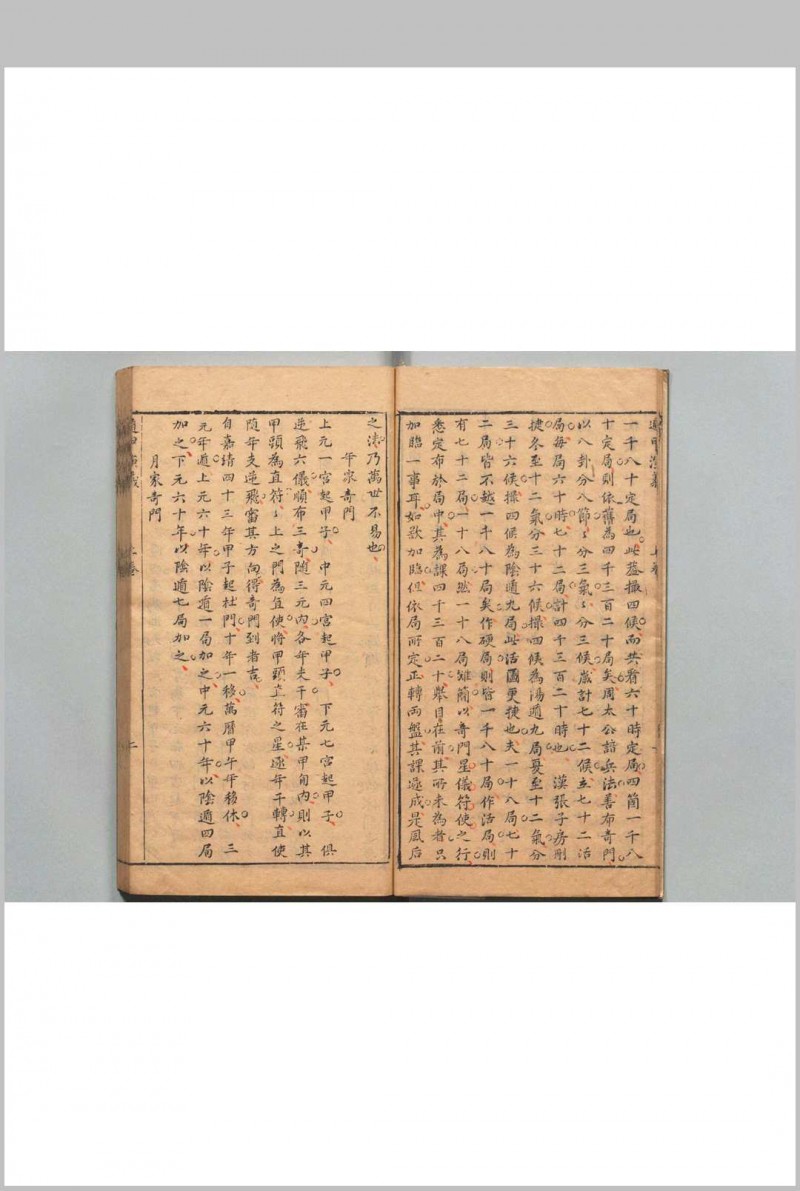 一千八十定局也此蓋撮四候而共看六十時定局四箇一千八
十定局則依舊為四千三百二十局矣周太公諳兵法善布奇門
以八卦分八節々分三氣々分三候歲計七十二候立七十二活
局每局六十時七十二局計四千三百二十時也 漢張子房刪
捷冬至十二氣分三十六候撮四候為陽遁九局夏至十二氣分
三十六候撮四候為陰遁九局此活圖更捷也夫一十八局七十
二局皆不越一千八十局矣作硬局則皆一千八十局作活局則
有七十二局一十八局然一十八局雖簡以奇門星儀符使之行
悉定布於局中其為課四千三百二十舉目在前其所未為者只
加臨一事耳如欲加臨但依局所定正轉兩盤其課過成是風后
之法乃萬世不易也
年家奇門
上元一宮起甲子 中元四宮起甲子 下元七宮起甲子 俱
逆飛六儀順布三奇隨三元內各年夫干審在某甲旬內則以其
甲頭為直符々上之門為直使將甲頭直符之星逐年干轉直使
隨年支逆飛審其方向得奇門到者吉
自嘉靖四十三年甲子起杜門十年一移萬曆甲午年移休 三
元年遁上元六十年以陰遁一局加之中元六十年以陰遁四局
加之下元六十年以陰遁七局加之
月家奇門